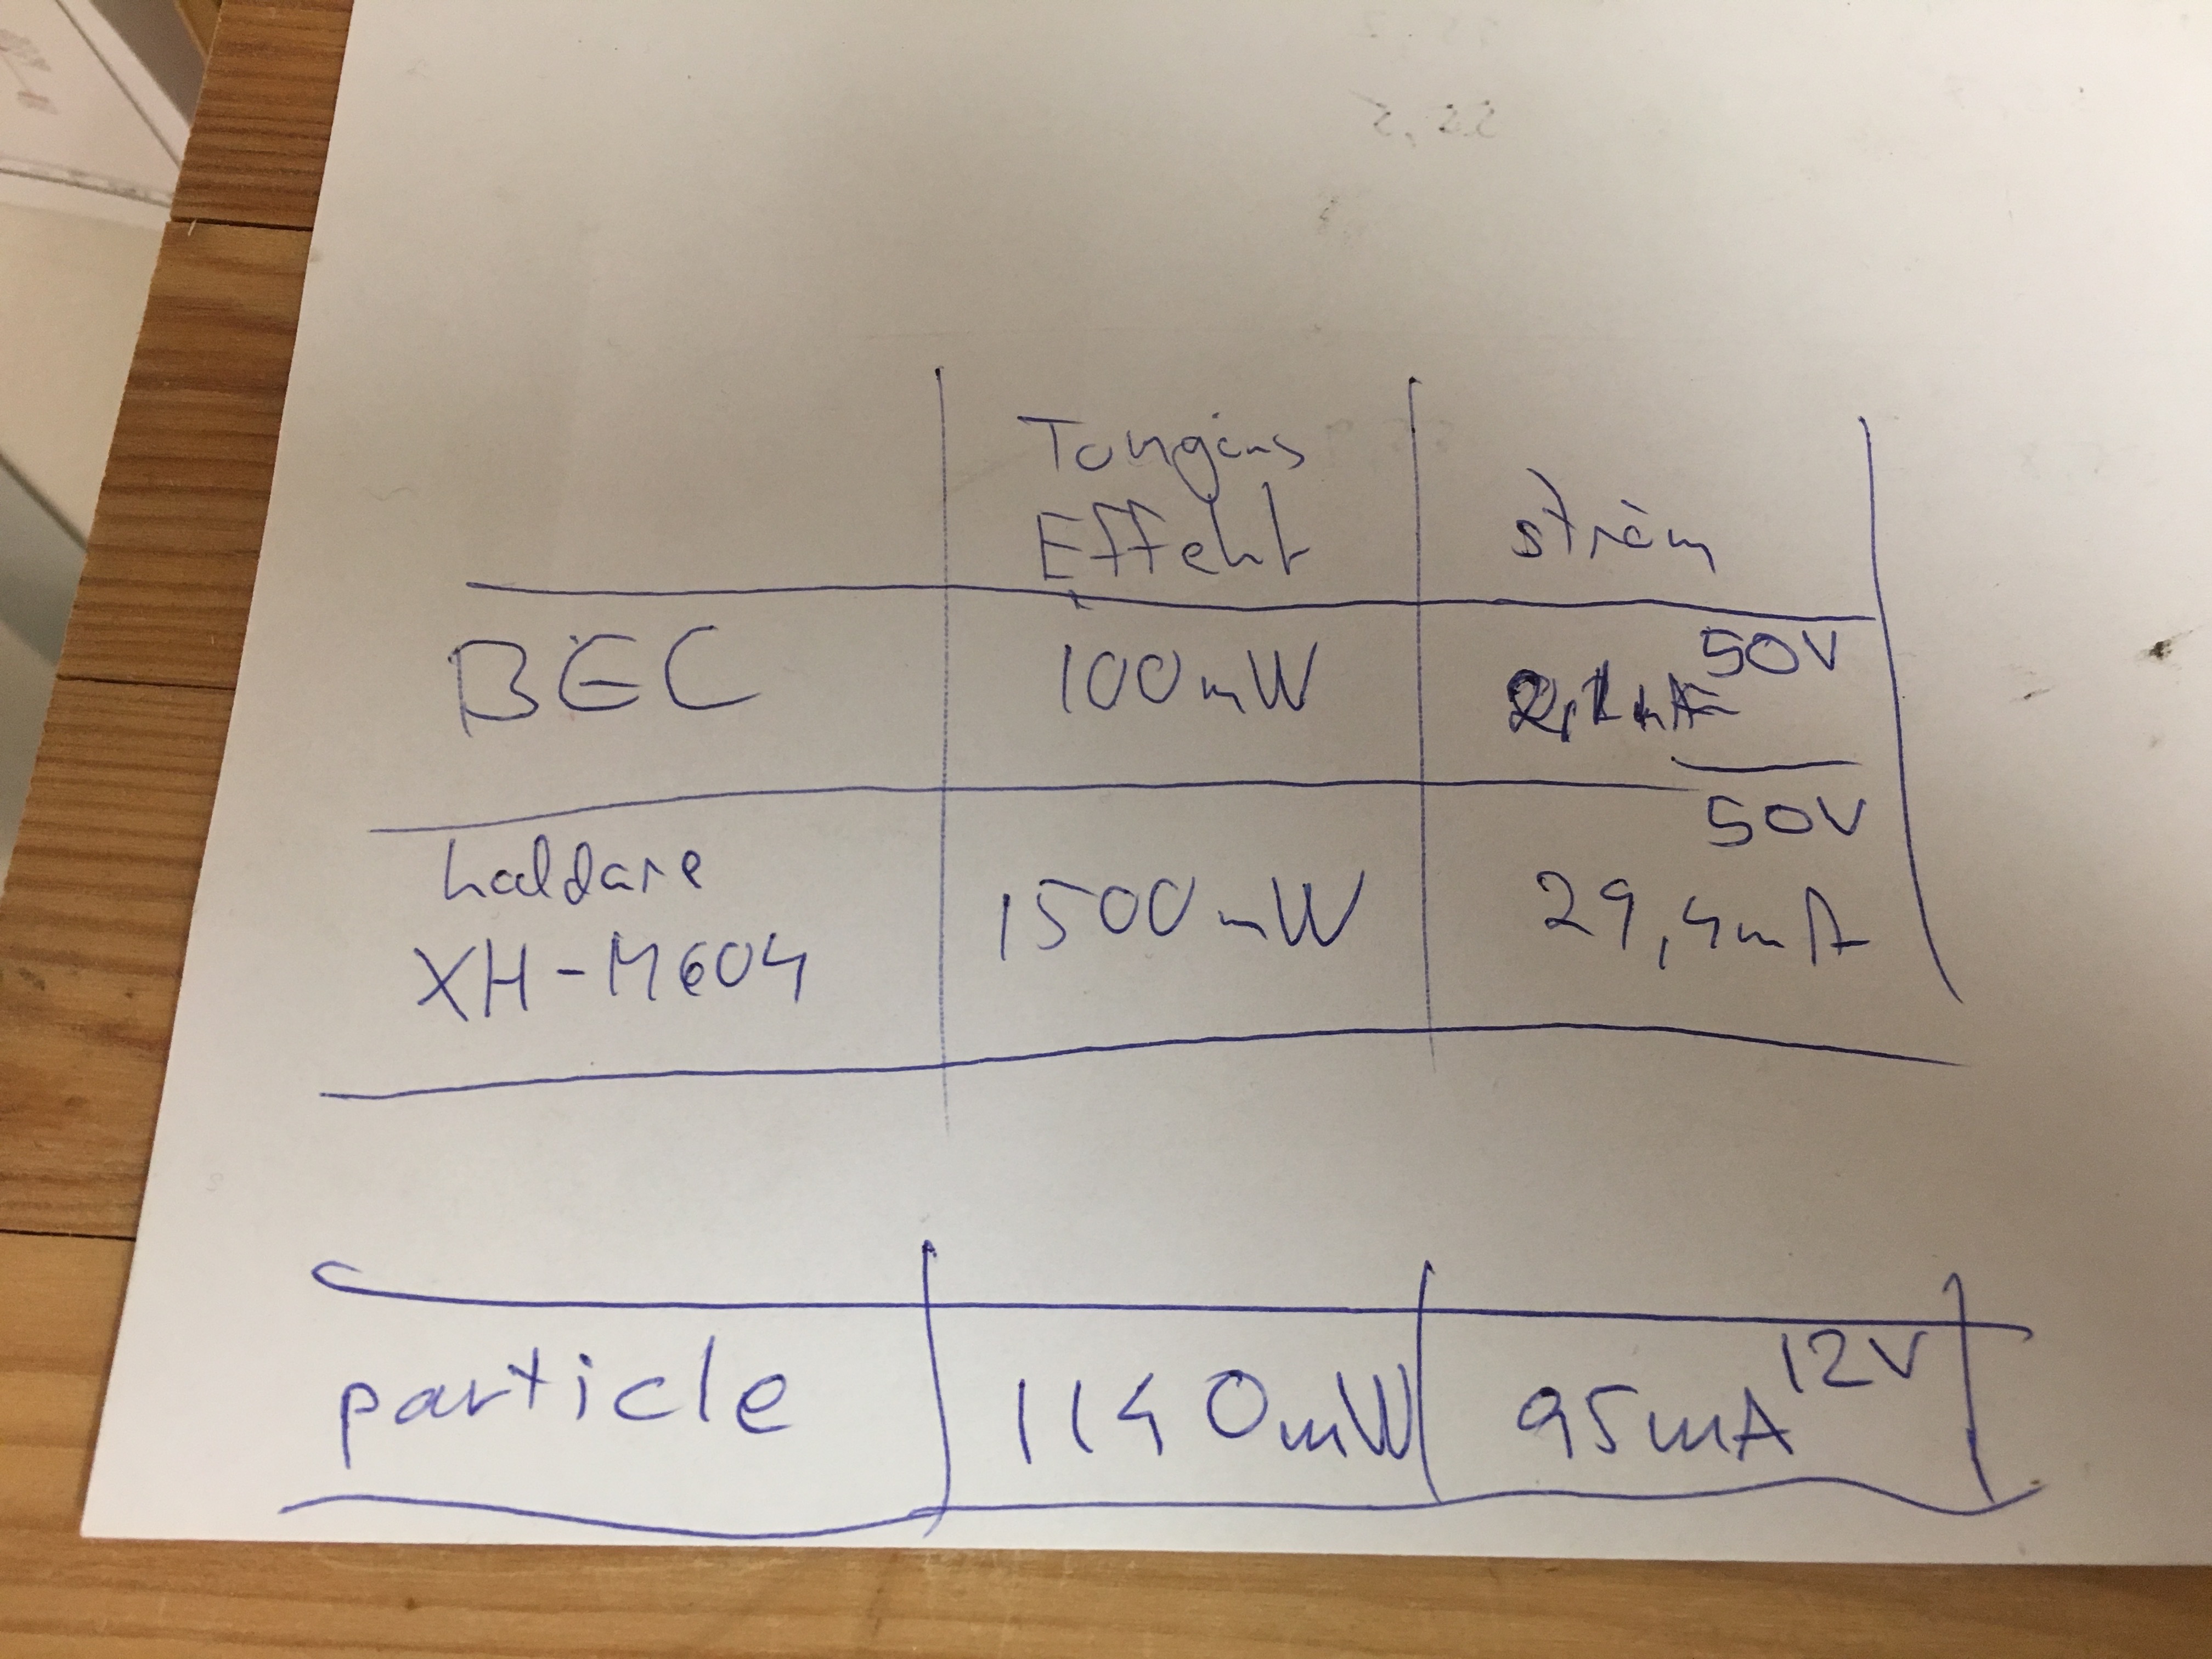 Tomgångs
Effekt
ström
BEC
100mW
2,1mA
50V
laddare
XH-M604
1500mW
50V
29,4mA
particle
1140mW
95mA
12V